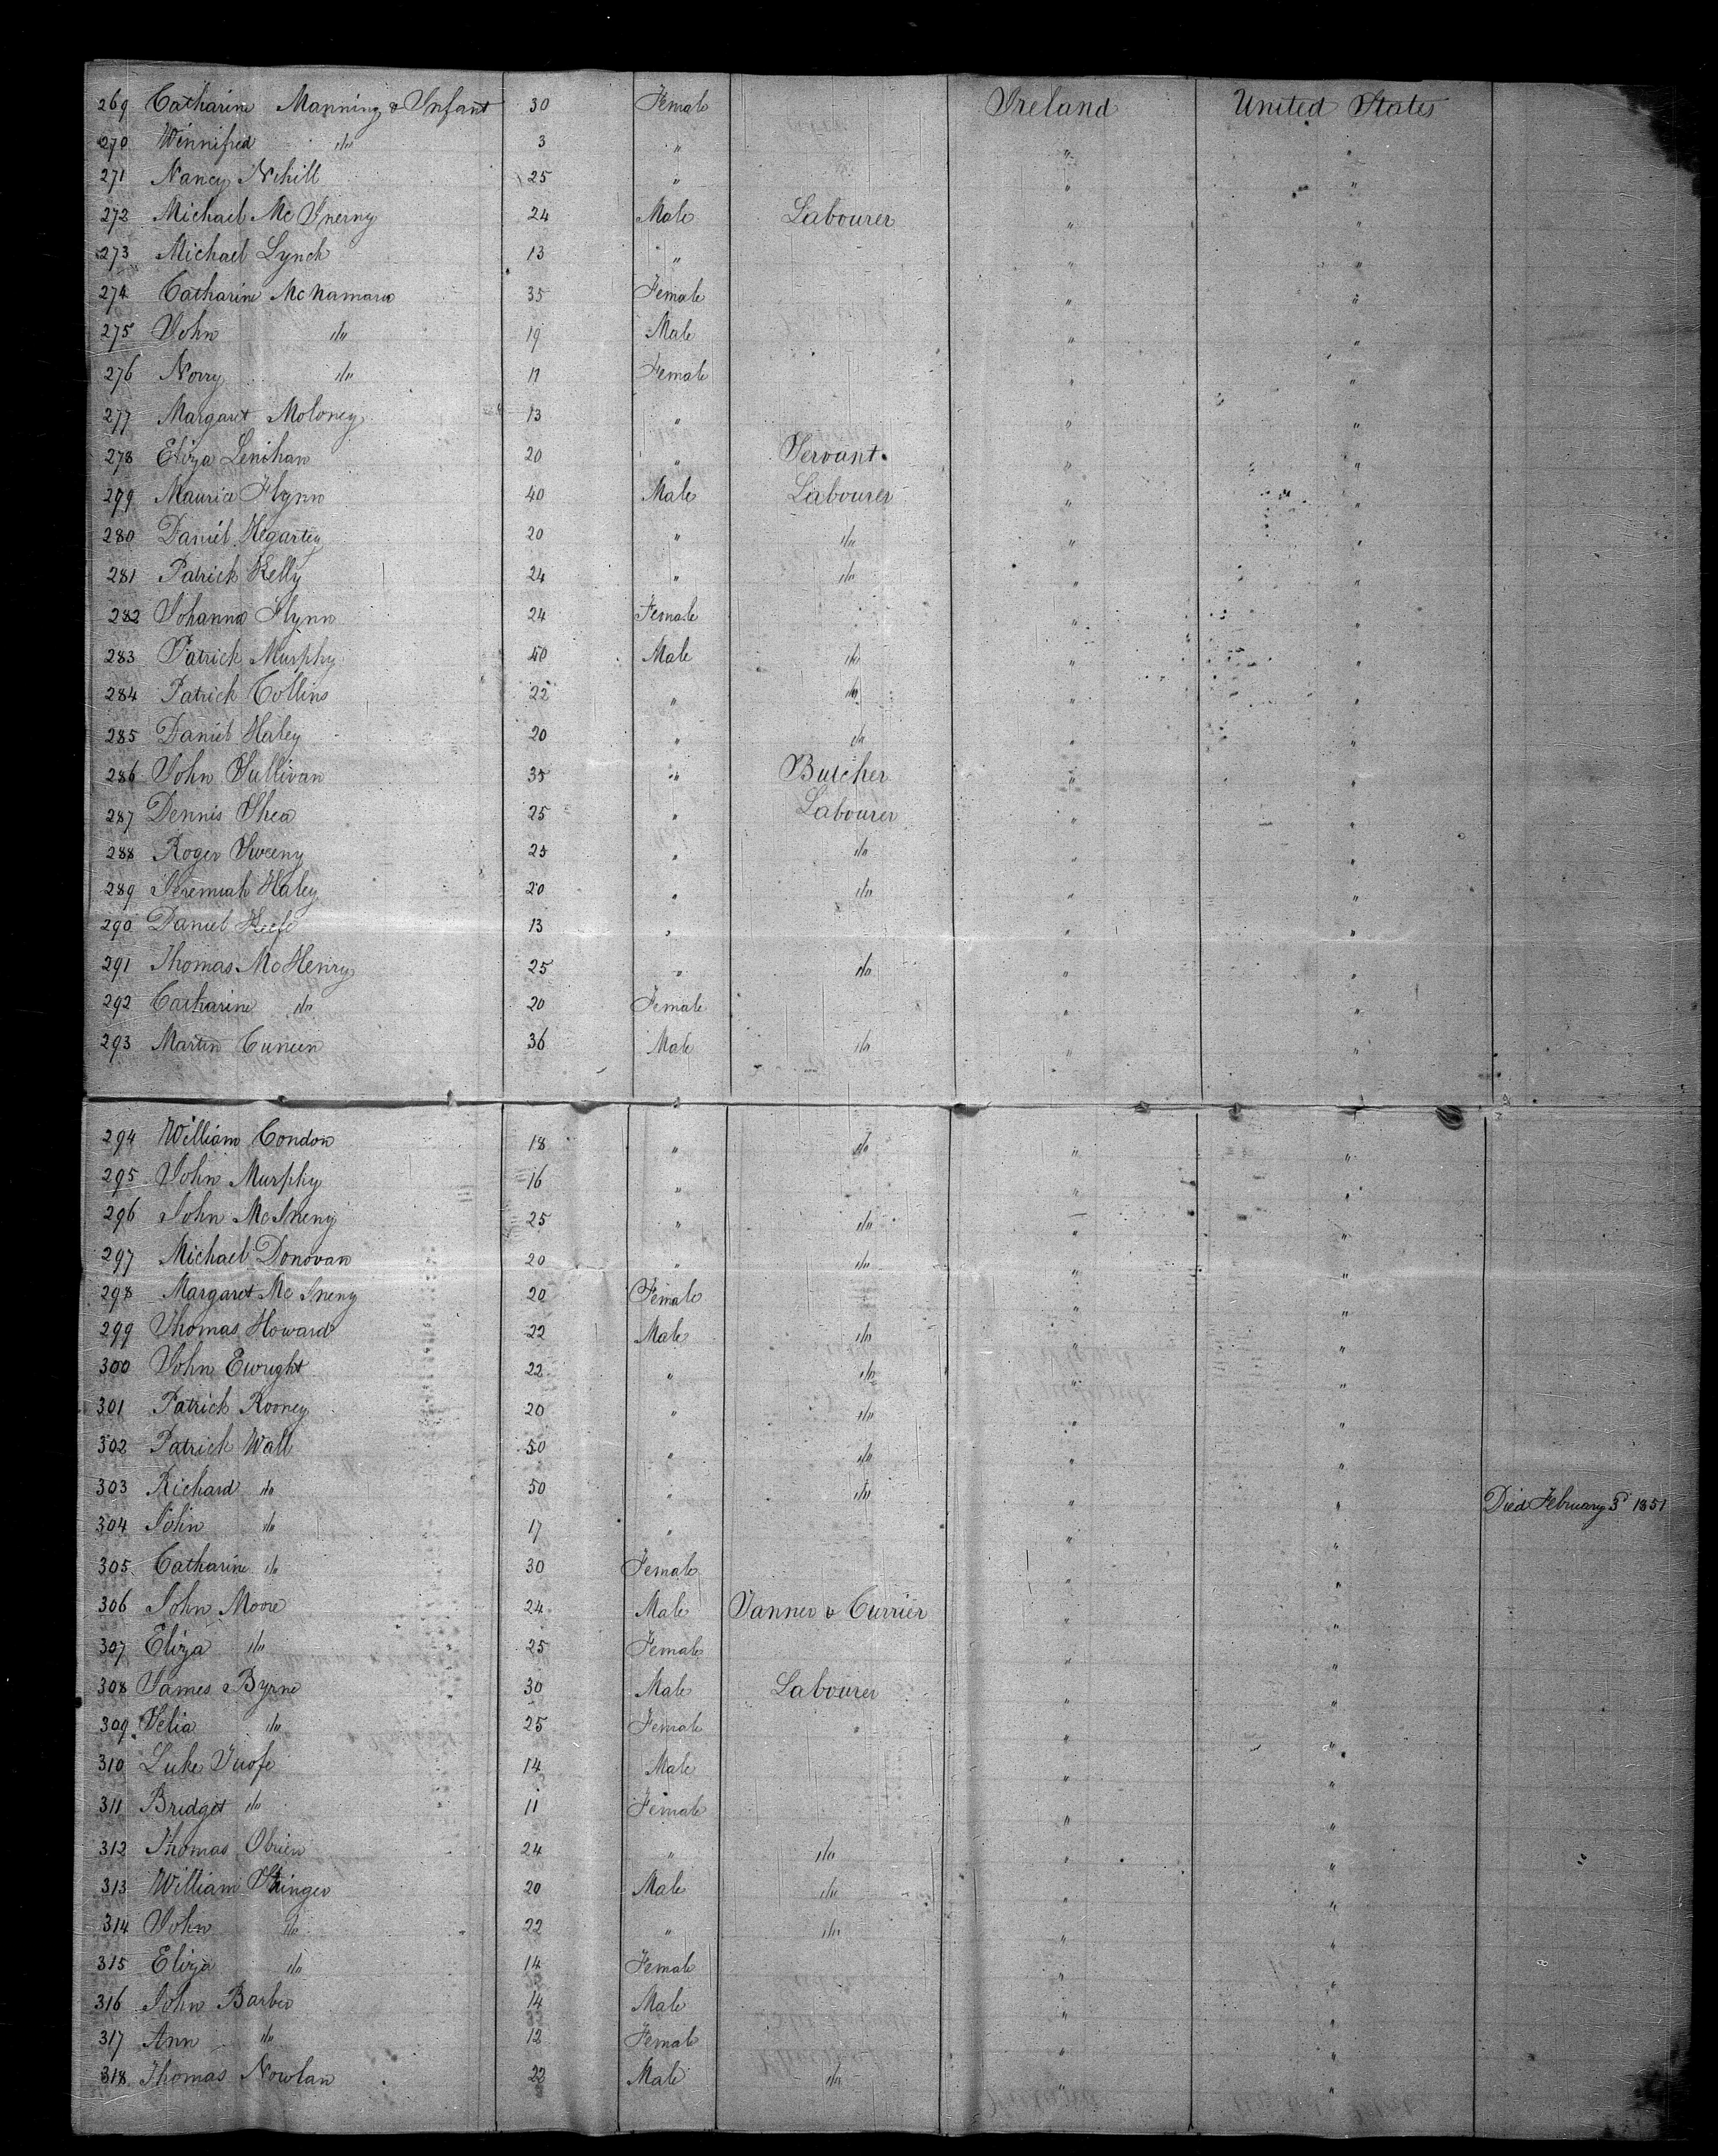 269 Catharine Manning & Infant 30 Female Ireland United States
270 Winnifred do 3 " " "
271 Nancy Nehill 25 " " "
272 Michael McInerny 24 Male Labourer " "
273 Michael Lynch 13 " " "
274 Catharine McNamara 35 Female " "
275 John do 19 Male " "
276 Norry do 17 Female " "
277 Margaret Moloney 13 " " "
278 Eliza Lenihan 20 " Servant " "
279 Maurice Flynn 40 Male Labourer " "
280 Daniel Hegarty 20 " do " "
281 Patrick Kelly 24 " do " "
282 Johanna Flynn 24 Female " "
283 Patrick Murphy 40 Male do " "
284 Patrick Collins 22 " do " "
285 Daniel Haley 20 " do " "
286 John Sullivan 35 " Butcher " "
287 Dennis Shea 25 " Labourer " "
288 Roger Sweeny 25 " do " "
289 Jeremiah Haley 20 " do " "
290 Daniel Keefe 13 " " "
291 Thomas McHenry 25 " do " "
292 Catharine do 20 Female " "
293 Martin Cuneen 36 Male do " "
294 William Condon 18 " do " "
295 John Murphy 16 " " "
296 John McIneny 25 " do " "
297 Michael Donovan 20 " do " "
298 Margaret McIneny 20 Female " "
299 Thomas Howard 22 Male do " "
300 John Ewright 22 " do " "
301 Patrick Rooney 20 " do " "
302 Patrick Wall 50 " do " "
303 Richard do 50 " do " " Died February 3d 1851
304 John do 17 " " "
305 Catharine do 30 Female " "
306 John Moore 24 Male Tanner & Currier " "
307 Eliza do 25 Female " "
308 James Byrne 30 Male Labourer " "
309 do 25 Female " " "
310 Luke 14 Male " "
311 Bridget do 11 Female " "
312 Thomas Obrien 24 " do " "
313 William 20 Male do " "
314 John do 22 " do " "
315 Eliza do 14 Female " "
316 John Barber 14 Male " "
317 Ann do 12 Female " "
318 Thomas Nowlan 22 Male do " "